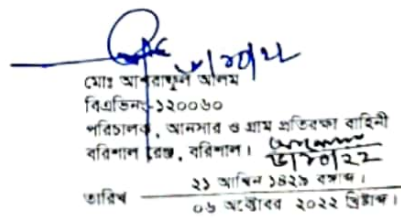 মোঃ আশরাফুল আলম
বিএভিনং-১২০০৬০
পরিচালক, আনসার ও গ্রাম প্রতিরক্ষা বাহিনী
বরিশাল রেঞ্জ, বরিশাল।
২১ আশ্বিন ১৪২৯ বঙ্গাব্দ।
তারিখ
০৬ অক্টোবর ২০২২ খ্রিষ্টাব্দ।